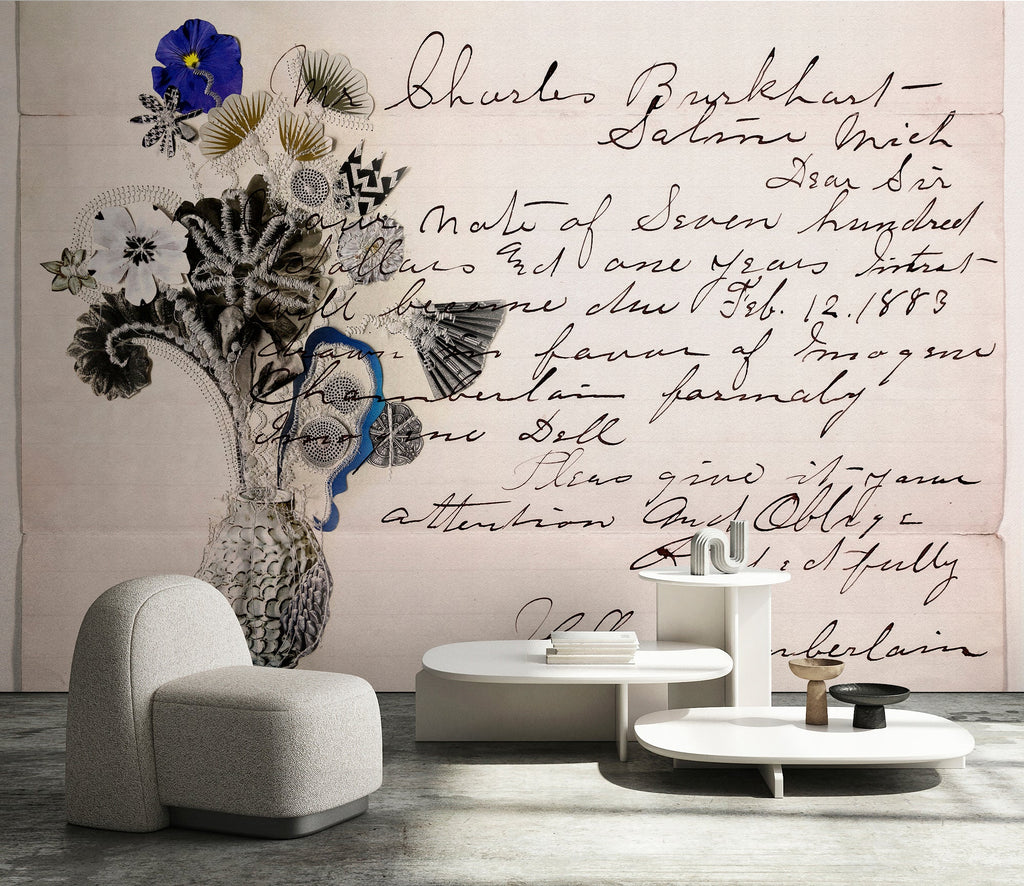 Mr Charles Burkhart
Saline Mich
Dear Sir
Your Note of Seven hundred
dollars and one years Intrest
will become due Feb. 12. 1883
drawn in favour of Imogene
Chamberlain formaly
Imogene Dell
Pleas give it your
attention And Oblige